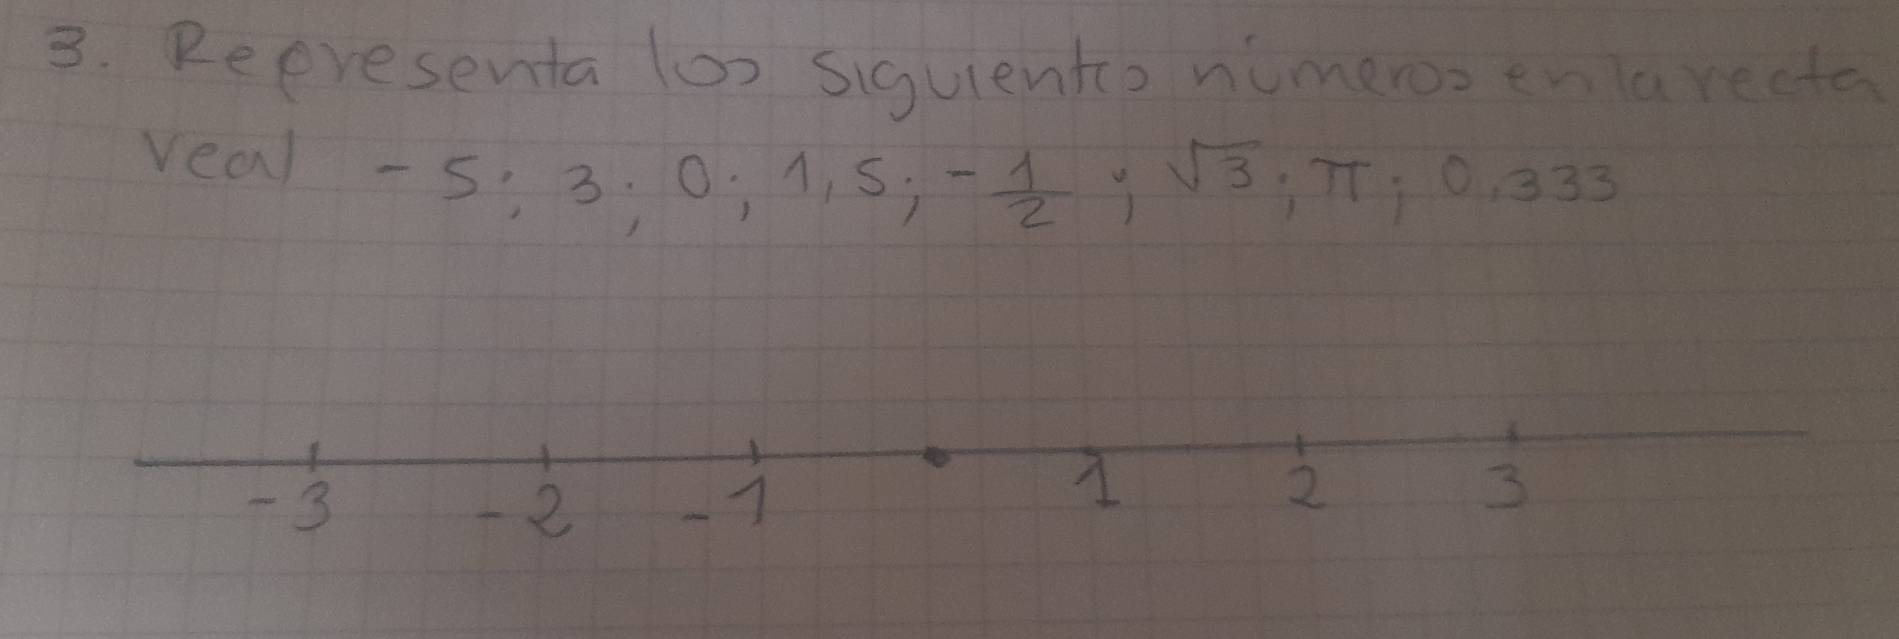 3. Representa los siguientes números en la recta
real -5; 3; 0; 1,5; -1/2; √3; π; 0,333
-3 -2 -1 1 2 3